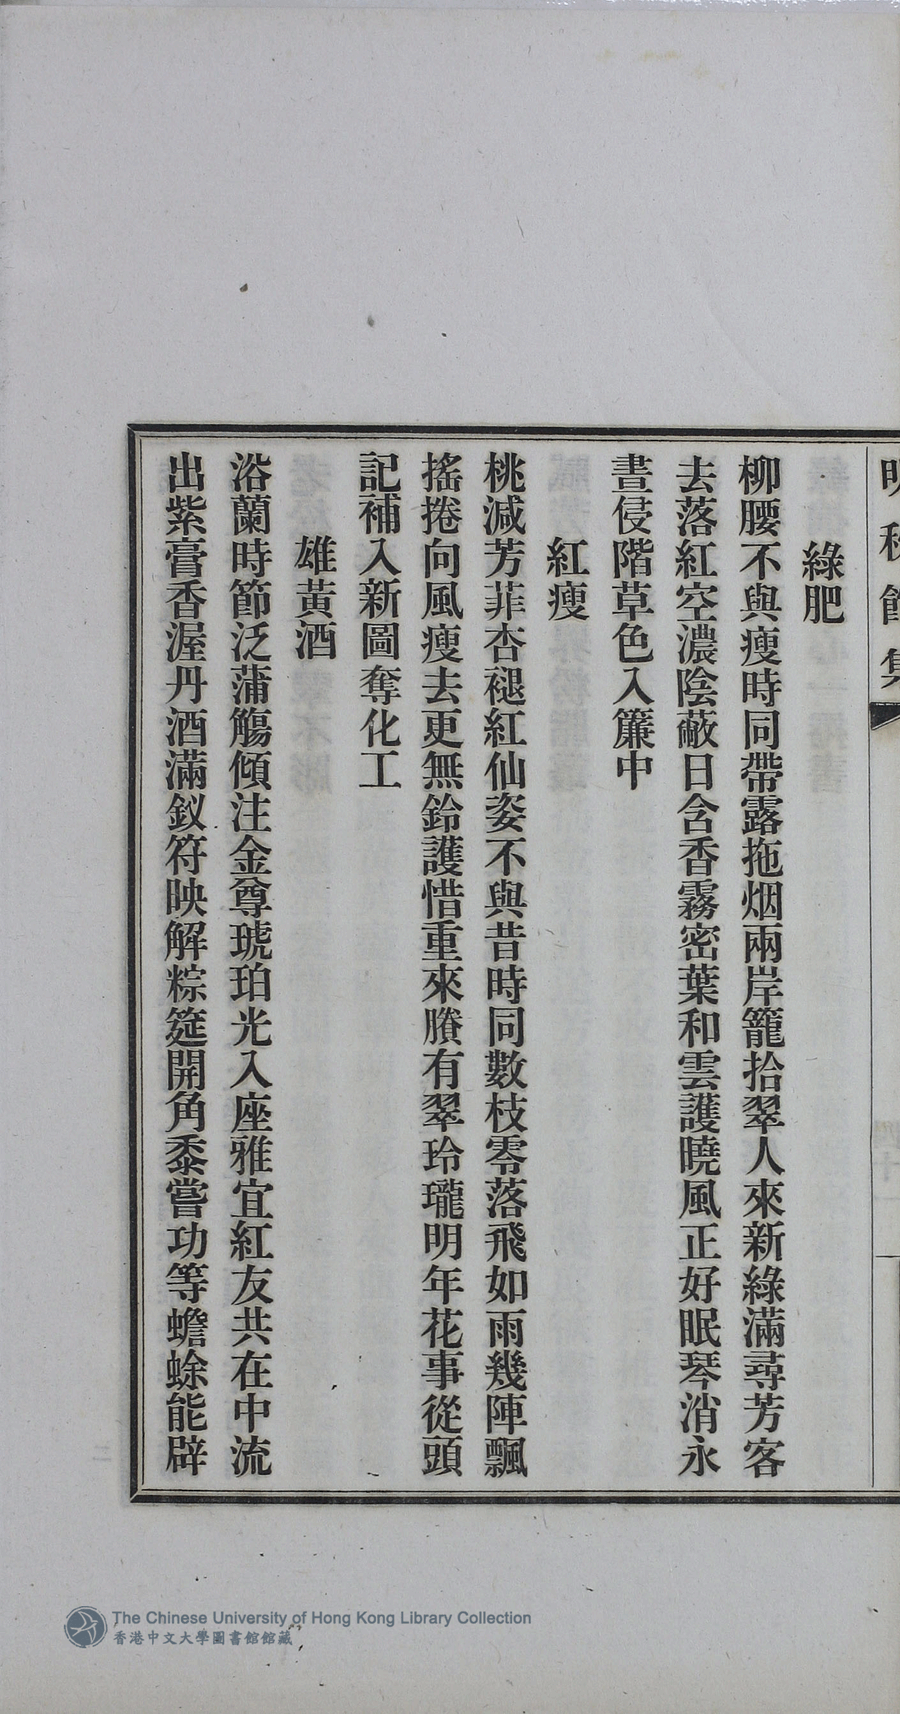 綠肥
柳腰不與瘦時同帶露拖烟兩岸籠拾翠人來新綠滿尋芳客
去落紅空濃陰蔽日含香霧密葉和雲護曉風正好眠琴消永
晝侵階草色入簾中
紅瘦
桃減芳菲杏褪紅仙姿不與昔時同數枝零落飛如雨幾陣飄
搖捲向風瘦去更無鈴護惜重來賸有翠玲瓏明年花事從頭
記補入新圖奪化工
雄黃酒
浴蘭時節泛蒲觴傾注金尊琥珀光入座雅宜紅友共在中流
出紫膏香渥丹酒滿釵符映解粽筵開角黍嘗功等蟾蜍能辟
The Chinese University of Hong Kong Library Collection
香港中文大學圖書館館藏